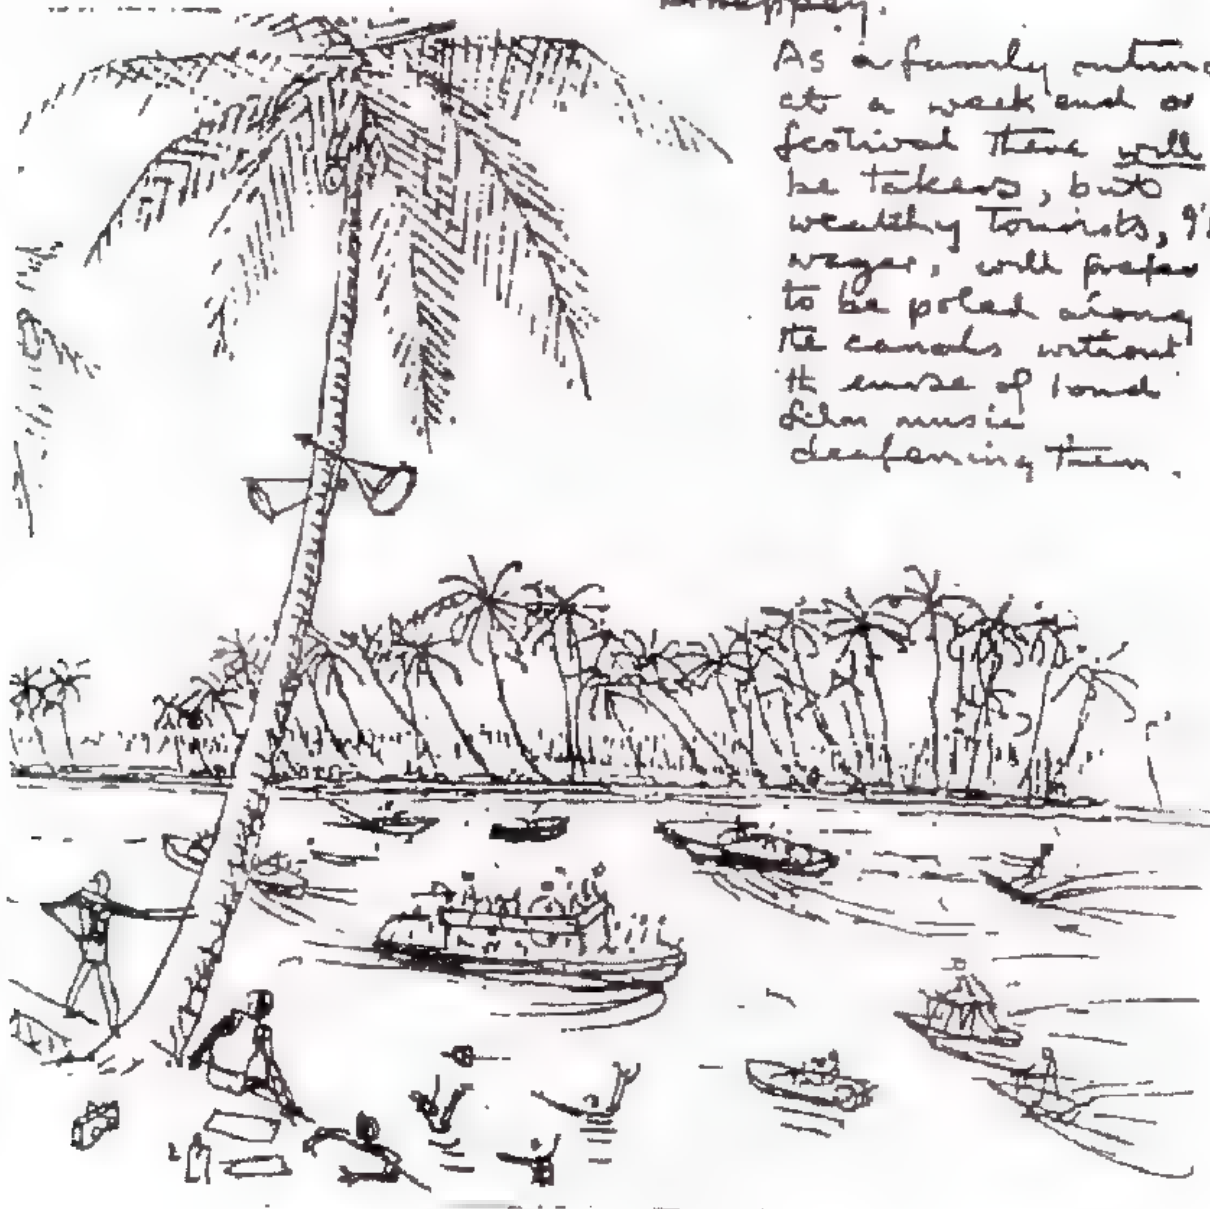 As a family outing
at a week end or
festival these will
be takers, but
wealthy tourists, I'll
wager, will prefer
to be poled along
the canals without
the noise of loud
film music
deafening them.